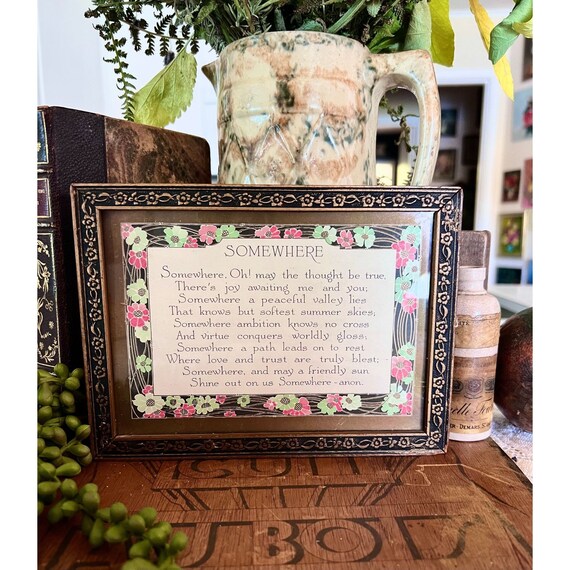 SOMEWHERE
Somewhere, Oh! may the thought be true,
There's joy awaiting me and you;
Somewhere a peaceful valley lies
That knows but softest summer skies;
Somewhere ambition knows no cross
And virtue conquers worldly gloss;
Somewhere a path leads on to rest
Where love and trust are truly blest;
Somewhere, and may a friendly sun
Shine out on us Somewhere - anon.